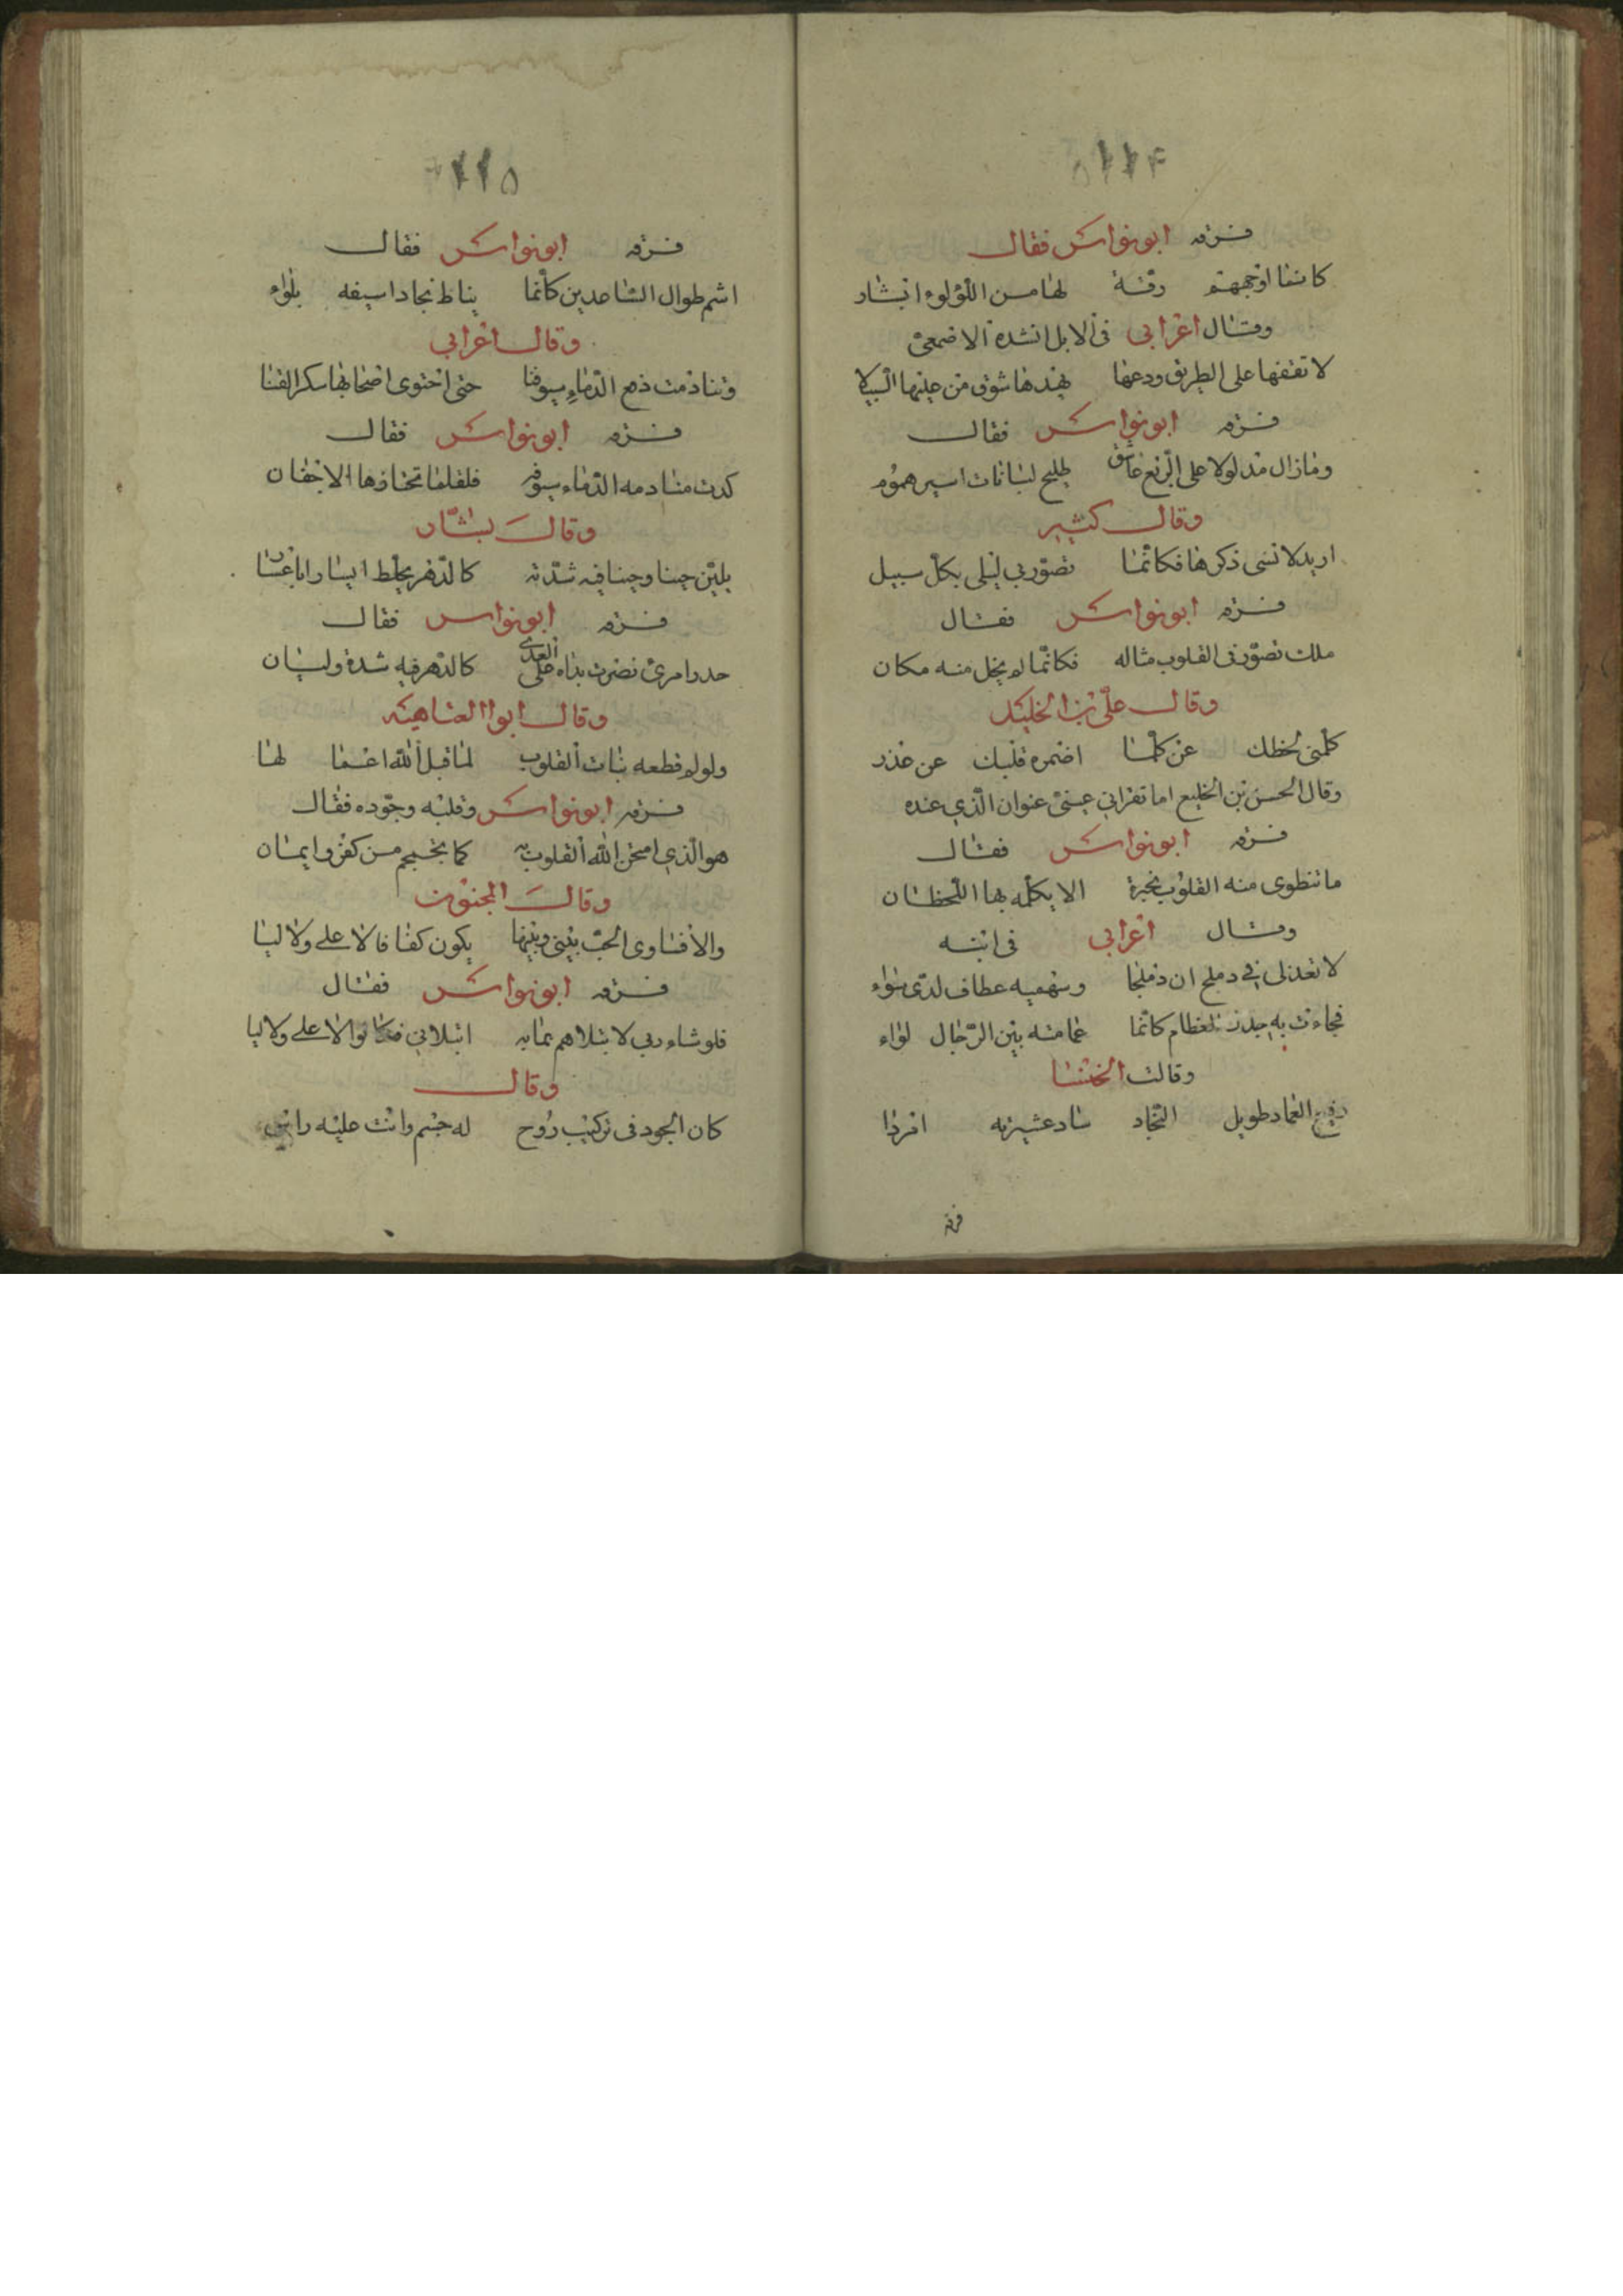 ١١٤
فسرقه ابو نواس فقال
كانما اوجههم رقة لها من اللؤلوء ابشار
وقال اعرابي في الابل انشده الاصمعي
لا تقفها على الطريق ودعها يهدها شوق من عليها السبيلا
فسرقه ابو نواس فقال
وما زال مدلولا على الربع عاشق طليح لبانات اسير هموم
وقال كثير
اريد لانسى ذكرها فكانما تصور بي ليلى بكل سبيل
فسرقه ابو نواس فقال
ملك تصور في القلوب مثاله فكانما لم يخل منه مكان
وقال علي بن الخليل
كلمني لحظك عن كلما اضمره قلبك عن غدر
وقال الحسن بن الخليع اما تقراني عيني عنوان الذي عنده
فسرقه ابو نواس فقال
ما تنطوي منه القلوب بفجرة الا يكلمه بها اللحظان
وقال اعرابي في ابنه
لا تعذلي في دملج ان دملجا وشهميه عطاف لدي سواء
فجاءت به العظام كانما عمامته بين الرجال لواء
وقالت الخنسا
رفيع العماد طويل النجاد ساد عشيرته امردا
فسرقه
١١٥
فسرقه ابو نواس فقال
اشم طوال الساعدين كانما يناط نجادا سيفه بلواء
وقال اعرابي
وتنادمت ذمع الدماء سيوفنا حتى احتوى اصحابها سكر الفنا
فسرقه ابو نواس فقال
كدت منادمه الدماء سيوفه فلقلما تختازها الاجفان
وقال بشار
يلين حينا وحينا فيه شدته كالدهر يخلط ايسارا باعسا
فسرقه ابو نواس فقال
حدر امرئ نصرت يداه على العدى كالدهر فيه شدة وليان
وقال ابوا العتاهيه
ولو لم قطعه بنات القلوب لما قبل الله اعمالها
فسرقه ابو نواس وقلبه وجوده فقال
هو الذي امتحن الله القلوب به كما يجمجم من كفر وايمان
وقال المجنون
والا فساوى الحب بيني وبينها يكون كفافا لا علي ولا ليا
فسرقه ابو نواس فقال
فلو شاء ربي لابتلاهم بما به ابتلاني فكانوا لا علي ولا ليا
وقال
كان الجود في تركيب روح له جسم وانت عليه راس